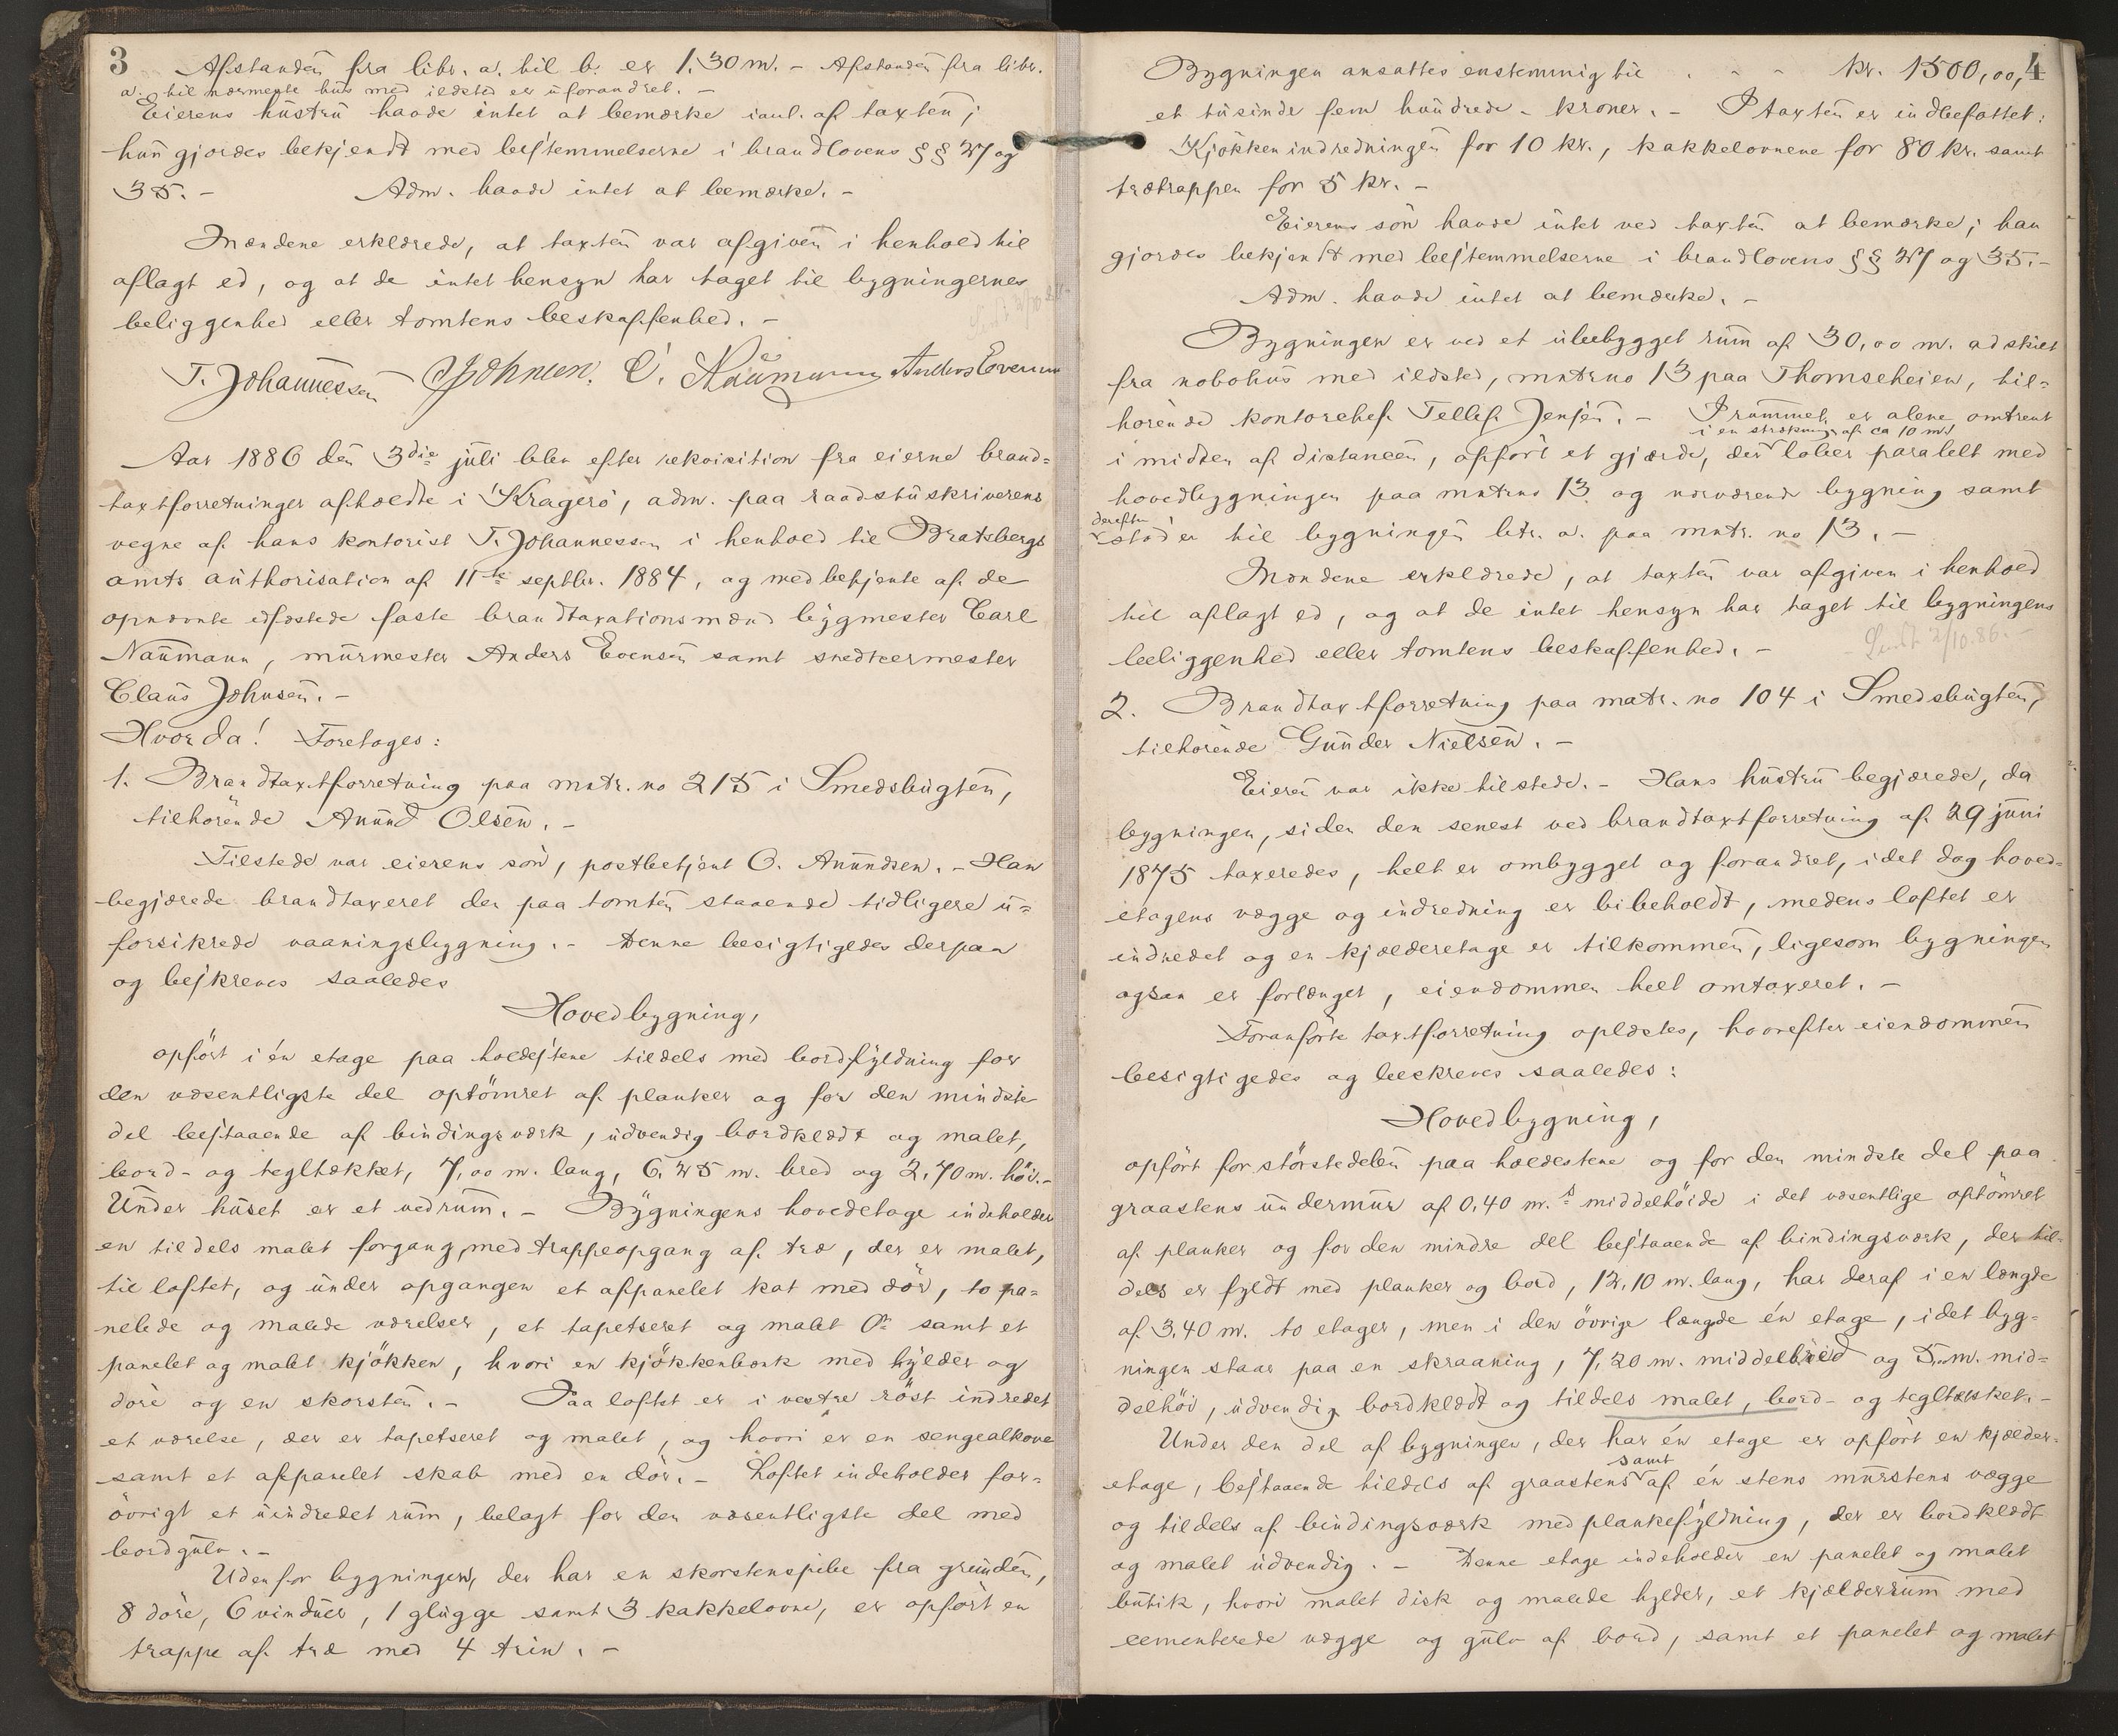 3
Afstanden fra litr. a. til b. er 1.30 m. - Afstanden fra litr.
a. til nærmeste hus med ildsted er uforandret. -
Eierens hustru havde intet at bemærke ianl. af taxten;
hun gjordes bekjendt med bestemmelserne i brandlovens §§ 27 og
35. - Adm. havde intet at bemærke. -
Mændene erklærede, at taxten var afgiven i henhold til
aflagt ed, og at de intet hensyn har taget til bygningernes
beliggenhed eller tomtens beskaffenhed. -
T. Johannessen CJohnsen. C. Naumann Anders Evensen
Aar 1886 den 3die juli blev efter rekvisition fra eierne brand=
taxtforretninger afholdte i Kragerö, adm. paa raadstuskriverens
vegne af hans kontorist T. Johannessen i henhold til Bratsbergs
amts authorisation af 11te septbr. 1884, og med bekjente af de
opnævnte edfæstede faste brandtaxationsmænd bygmester Carl
Naumann, murmester Anders Evensen samt snedkermester
Claus Johnsen. -
Hvor da! Foretoges:
1. Brandtaxtforretning paa mntr. no 215 i Smedsbugten,
tilhörende Anund Olsen. -
Tilstede var eierens sön, postbetjent O. Anundsen. - Han
begjærede brandtaxeret den paa tomten staaende tidligere u=
forsikrede vaaningsbygning. - Denne besigtigedes derpaa
og beskreves saaledes
Hovedbygning,
opfört i én etage paa holdestene tildels med bordfyldning for
den væsentligste del optömret af planker og for den mindste
del bestaaende af bindingsværk, udvendig bordklædt og malet,
bord- og tegltækket, 7,00 m. lang, 6,25 m. bred og 2,70 m. höi. -
Under huset er et vedrum. - Bygningens hovedetage indeholder
en tildels malet forgang med trappeopgang af træ, der er malet,
til loftet, og under opgangen et afpanelet kot med dör, to pa=
nelede og malede værelser, et tapetseret og malet do samt et
panelet og malet kjökken, hvori en kjökkenbænk med hylder og
döre og en skorsten. - Paa loftet er i vestre röst indredet
et værelse, der er tapetseret og malet, og hvori er en sengealkove
samt et afpanelet skab med en dör. - Loftet indeholder for=
övrigt et uindredet rum, belagt for den væsentligste del med
bordgulv. -
Udenfor bygningen, der har en skorstenspibe fra grunden,
8 döre, 6 vinduer, 1 glugge samt 3 kakkelovne, er opfört en
trappe af træ med 4 trin. -
4
Bygningen ansattes enstemmig til . - - kr. 1500,00,
et tusinde fem hundrede - kroner. - I taxten er indbefattet:
Kjökkenindredningen for 10 kr., kakkelovnene for 80 kr. samt
trætrappen for 5 kr. -
Eierens sön havde intet ved taxten at bemærke; han
gjordes bekjendt med bestemmelserne i brandlovens §§ 27 og 35. -
Adm. havde intet at bemærke. -
Bygningen er ved et ubebygget rum af 30,00 m. adskilt
fra nabohus med ildsted, mntr no 13 paa Thomseheien, til=
hörende kontorchef Tellef Jensen. - I rummet er alene omtrent
i en strækning af ca 10 m.
i midten af distancen, opfört et gjærde, der löber paralelt med
hovedbygningen paa mntr no 13 og nærværende bygning samt
derefter
stöder til bygningen litr. a. paa mntr. no 13. -
Mændene erklærede, at taxten var afgiven i henhold
til aflagt ed, og at de intet hensyn har taget til bygningens
beliggenhed eller tomtens beskaffenhed. -
Sendt 2/10.86.
2. Brandtaxtforretning paa matr. no 104 i Smedsbugten,
tilhörende Gunder Nielsen. -
Eieren var ikke tilstede. - Hans hustru begjærede, da
bygningen, siden den senest ved brandtaxtforretning af 29 juni
1875 taxeredes, helt er ombygget og forandret, idet dog hoved=
etagens vægge og indredning er bibeholdt, medens loftet er
indredet og en kjælderetage er tilkommen, ligesom bygningen
ogsaa er forlænget, eiendommen helt omtaxeret. -
Foranförte taxtforretning oplæstes, hvorefter eiendommen
besigtigedes og beskreves saaledes:
Hovedbygning,
opfört for störstedelen paa holdestene og for den mindste del paa
graastens undermur af 0,40 m.s middelhöide i det væsentlige optömret
af planker og for den mindre del bestaaende af bindingsværk, der til=
dels er fyldt med planker og bord, 12,10 m. lang, har deraf i en længde
af 3,40 m. to etager, men i den övrige længde én etage, idet byg=
ningen staar paa en skraaning, 7,20 m. middelbred og 5,00 m. mid=
delhöi, udvendig bordklædt og tildels malet, bord- og tegltækket. -
Under den del af bygningen, der har én etage er opfört en kjælder=
samt
etage, bestaaende tildels af graastens af én stens murstens vægge
og tildels af bindingsværk med plankefyldning, der er bordklædt
og malet udvendig. - Denne etage indeholder en panelet og malet
butik, hvori malet disk og malede hylder, et kjælderrum med
cementerede vægge og gulv af bord, samt et panelet og malet